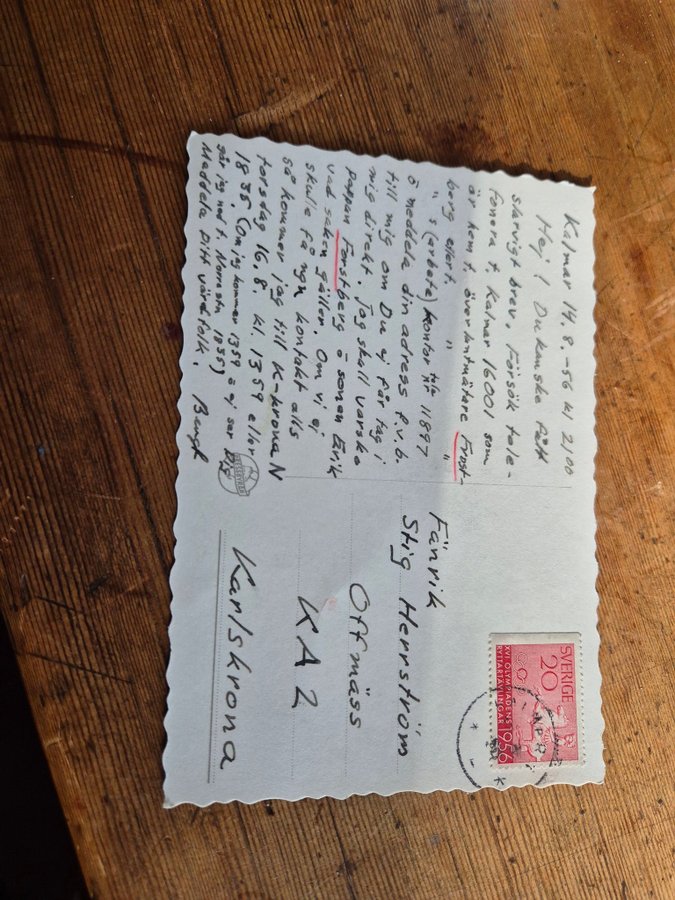 Kalmar 14.8.-56 kl 2100
Hej! Du kanske fått
slarvigt brev. Försök tele-
fonera t. Kalmar 16001 som
är hem t. överlantmätare Frost-
berg eller t. " "
" s (arbete) kontor tele 11897
o meddela din adress f.v.b.
till mig om Du ej får tag i
mig direkt. Jag skall varsko
pappan Forstberg o sonen Erik
vad saken gäller. Om vi ej
skulle få ngn kontakt alls
så kommer jag till K-krona N
torsdag 16.8. kl. 1359 eller
1835 (Om jag kommer 1359 o ej ser Dig
går jag ned t. Norrastn 1835)
Meddela Ditt värdfolk. Bengt
Fänrik
Stig Herrström
Offmäss
KA 2
Karlskrona
SVERIGE
20
XVI. OLYMPIADENS
RYTTARTÄVLINGAR 1956